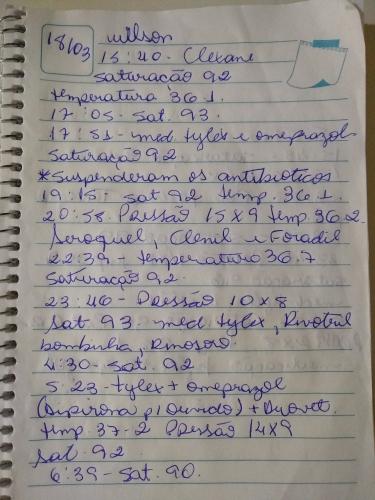 18/03
Wilson
15:40. Clexane
saturação 92
temperatura 36.1.
17:05- sat. 93.
17:51- med. tylex e omeprazol
saturação 92
*Suspenderam os antibioticos
19:15- sat 92 temp. 36.1.
20:58. Pressão 15x9 temp. 36.2.
Seroquel, Clenil e Foradil
22:39 - temperatura 36.7
saturação 92.
23:46 - Pressão 10x8
Sat 93. med tylex, Rivotril
bombinha, Rinosoro.
4:30- sat. 92
5:23- tylex + omeprazol
(Dipirona p/ ouvido) + Duovet.
temp. 37-2 Pressão 14x9
Sat. 92
6:39- Sat. 90.